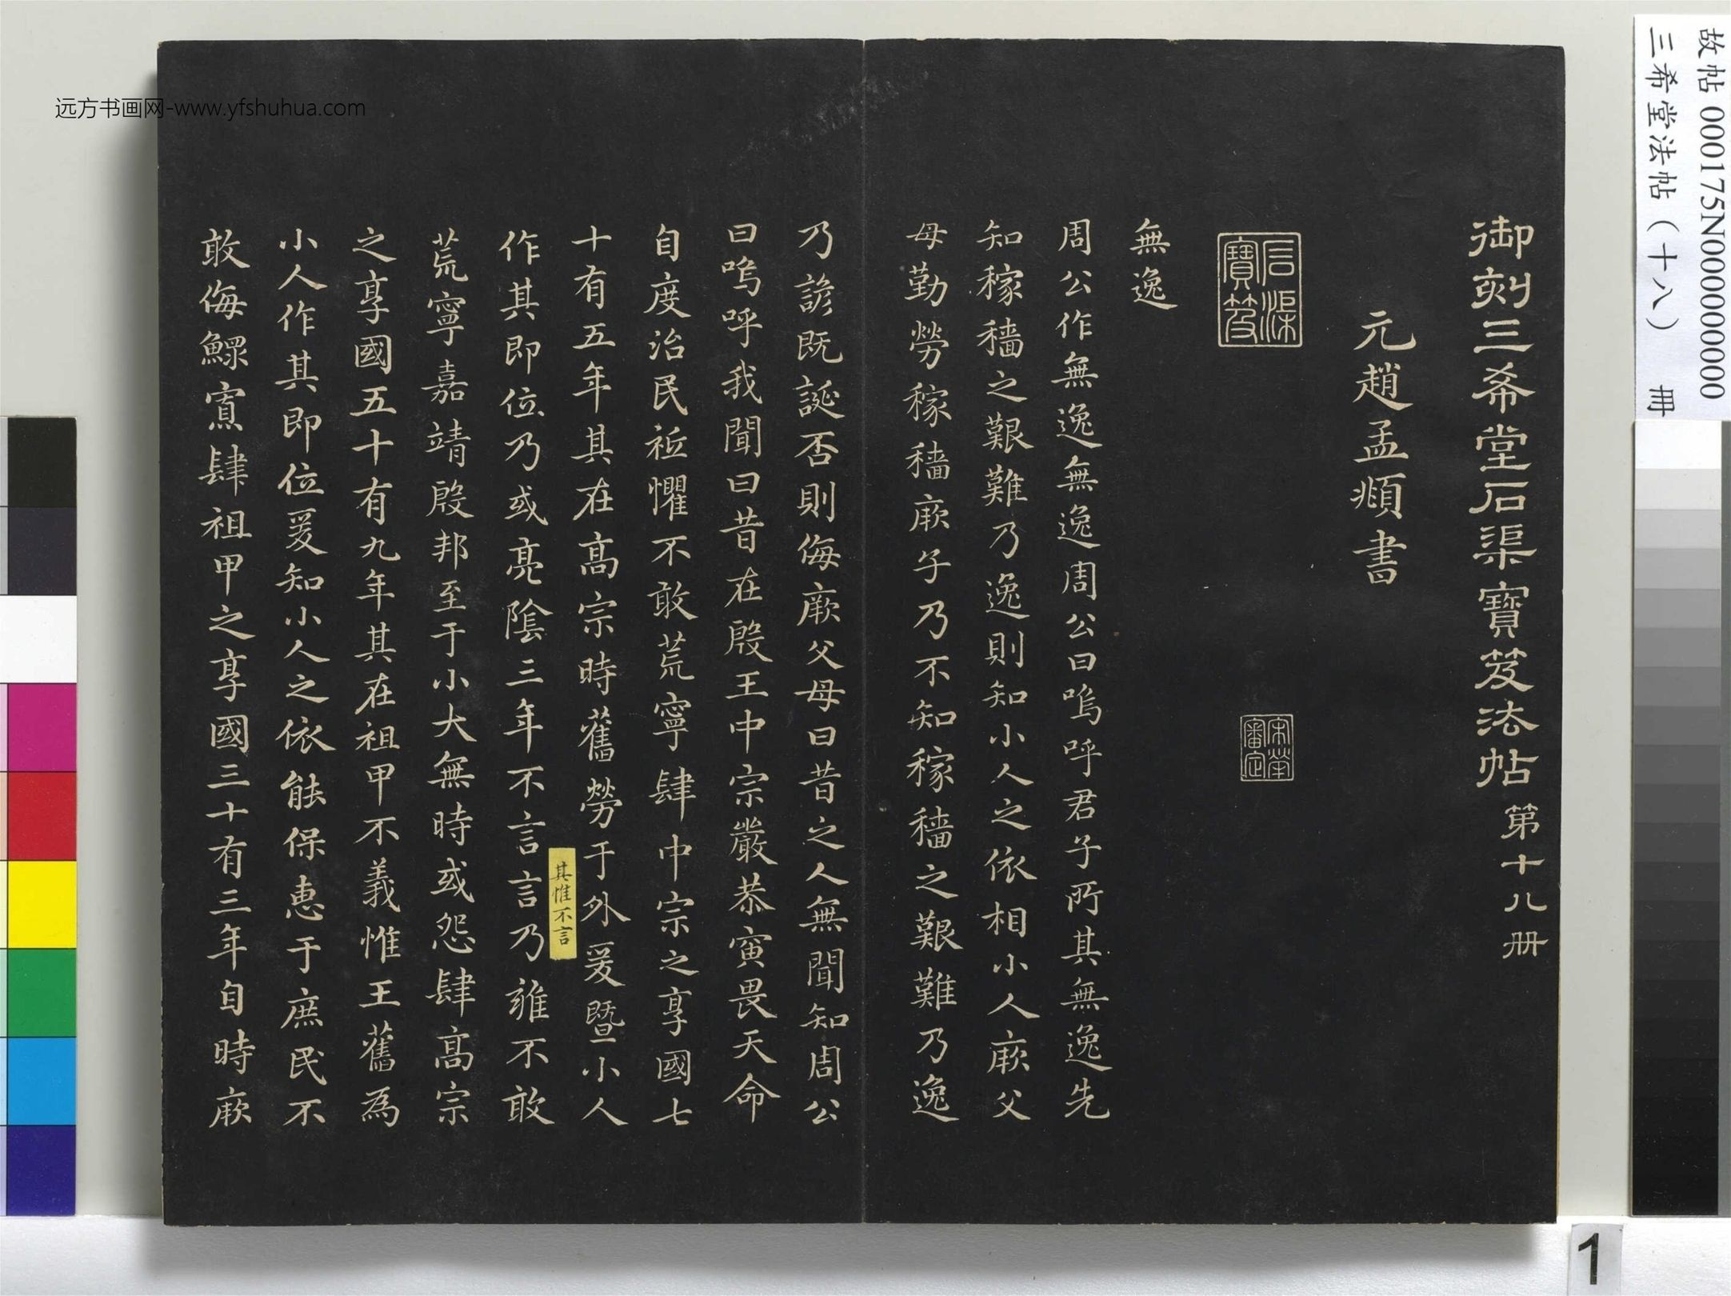 御刻三希堂石渠寶笈法帖第十八册
元趙孟頫書
石渠寶笈
宋犖審定
無逸
周公作無逸無逸周公曰嗚呼君子所其無逸先
知稼穡之艱難乃逸則知小人之依相小人厥父
母勤勞稼穡厥子乃不知稼穡之艱難乃逸
乃諺既誕否則侮厥父母曰昔之人無聞知周公
曰嗚呼我聞曰昔在殷王中宗嚴恭寅畏天命
自度治民祗懼不敢荒寧肆中宗之享國七
十有五年其在高宗時舊勞于外爰暨小人
其惟不言
作其即位乃或亮陰三年不言言乃雍不敢
荒寧嘉靖殷邦至于小大無時或怨肆高宗
之享國五十有九年其在祖甲不義惟王舊為
小人作其即位爰知小人之依能保惠于庶民不
敢侮鰥寡肆祖甲之享國三十有三年自時厥
故帖 000175N000000000
三希堂法帖（十八） 冊
远方书画网-www.yfshuhua.com
1